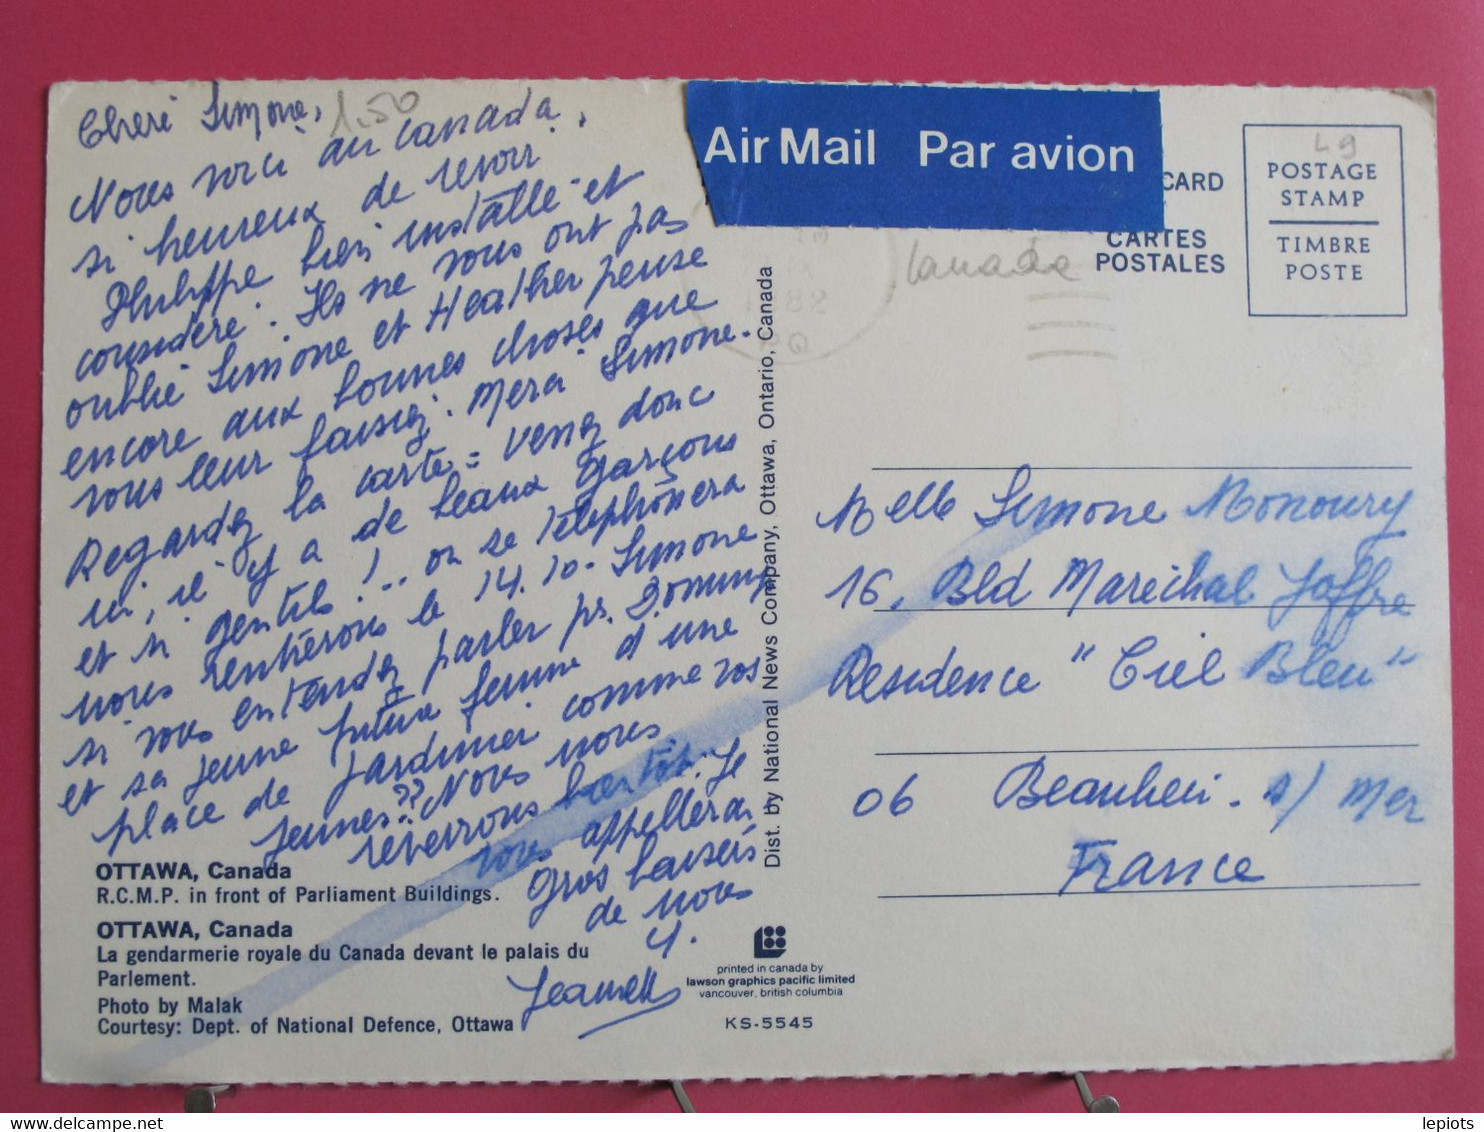 Cheré Simone,
1.50
Nous voici au Canada,
si heureux de revoir
Philippe bien installé et
considéré. Ils ne vous ont pas
oublié Simone et Heather pense
encore aux bonnes choses que
vous leur faisiez. Merci Simone.
Regardez la carte = Venez donc
ici, il y a de beaux garçons
et si gentils !... on se téléphonera
nous rentrerons le 14.10. Simone
si vous entendez parler pr.
et sa jeune future femme d'une
place de jardinier comme vos
jeunes?? Nous nous
reverrons bientôt. Je
vous appellerai
Gros baisers
de nous
4.
OTTAWA, Canada
R.C.M.P. in front of Parliament Buildings.
OTTAWA, Canada
La gendarmerie royale du Canada devant le palais du
Parlement.
Photo by Malak
Courtesy: Dept. of National Defence, Ottawa
Dist. by National News Company, Ottawa, Ontario, Canada
printed in canada by
lawson graphics pacific limited
vancouver, british columbia
KS-5545
Air Mail Par avion
CARD
CARTES
POSTALES
Canada
1982
PQ
49
POSTAGE
STAMP
TIMBRE
POSTE
Melle Simone Monoury
16, Bld Maréchal Joffre
Residence "Ciel Bleu"
06 Beaulieu. s/ Mer
France
lepiots